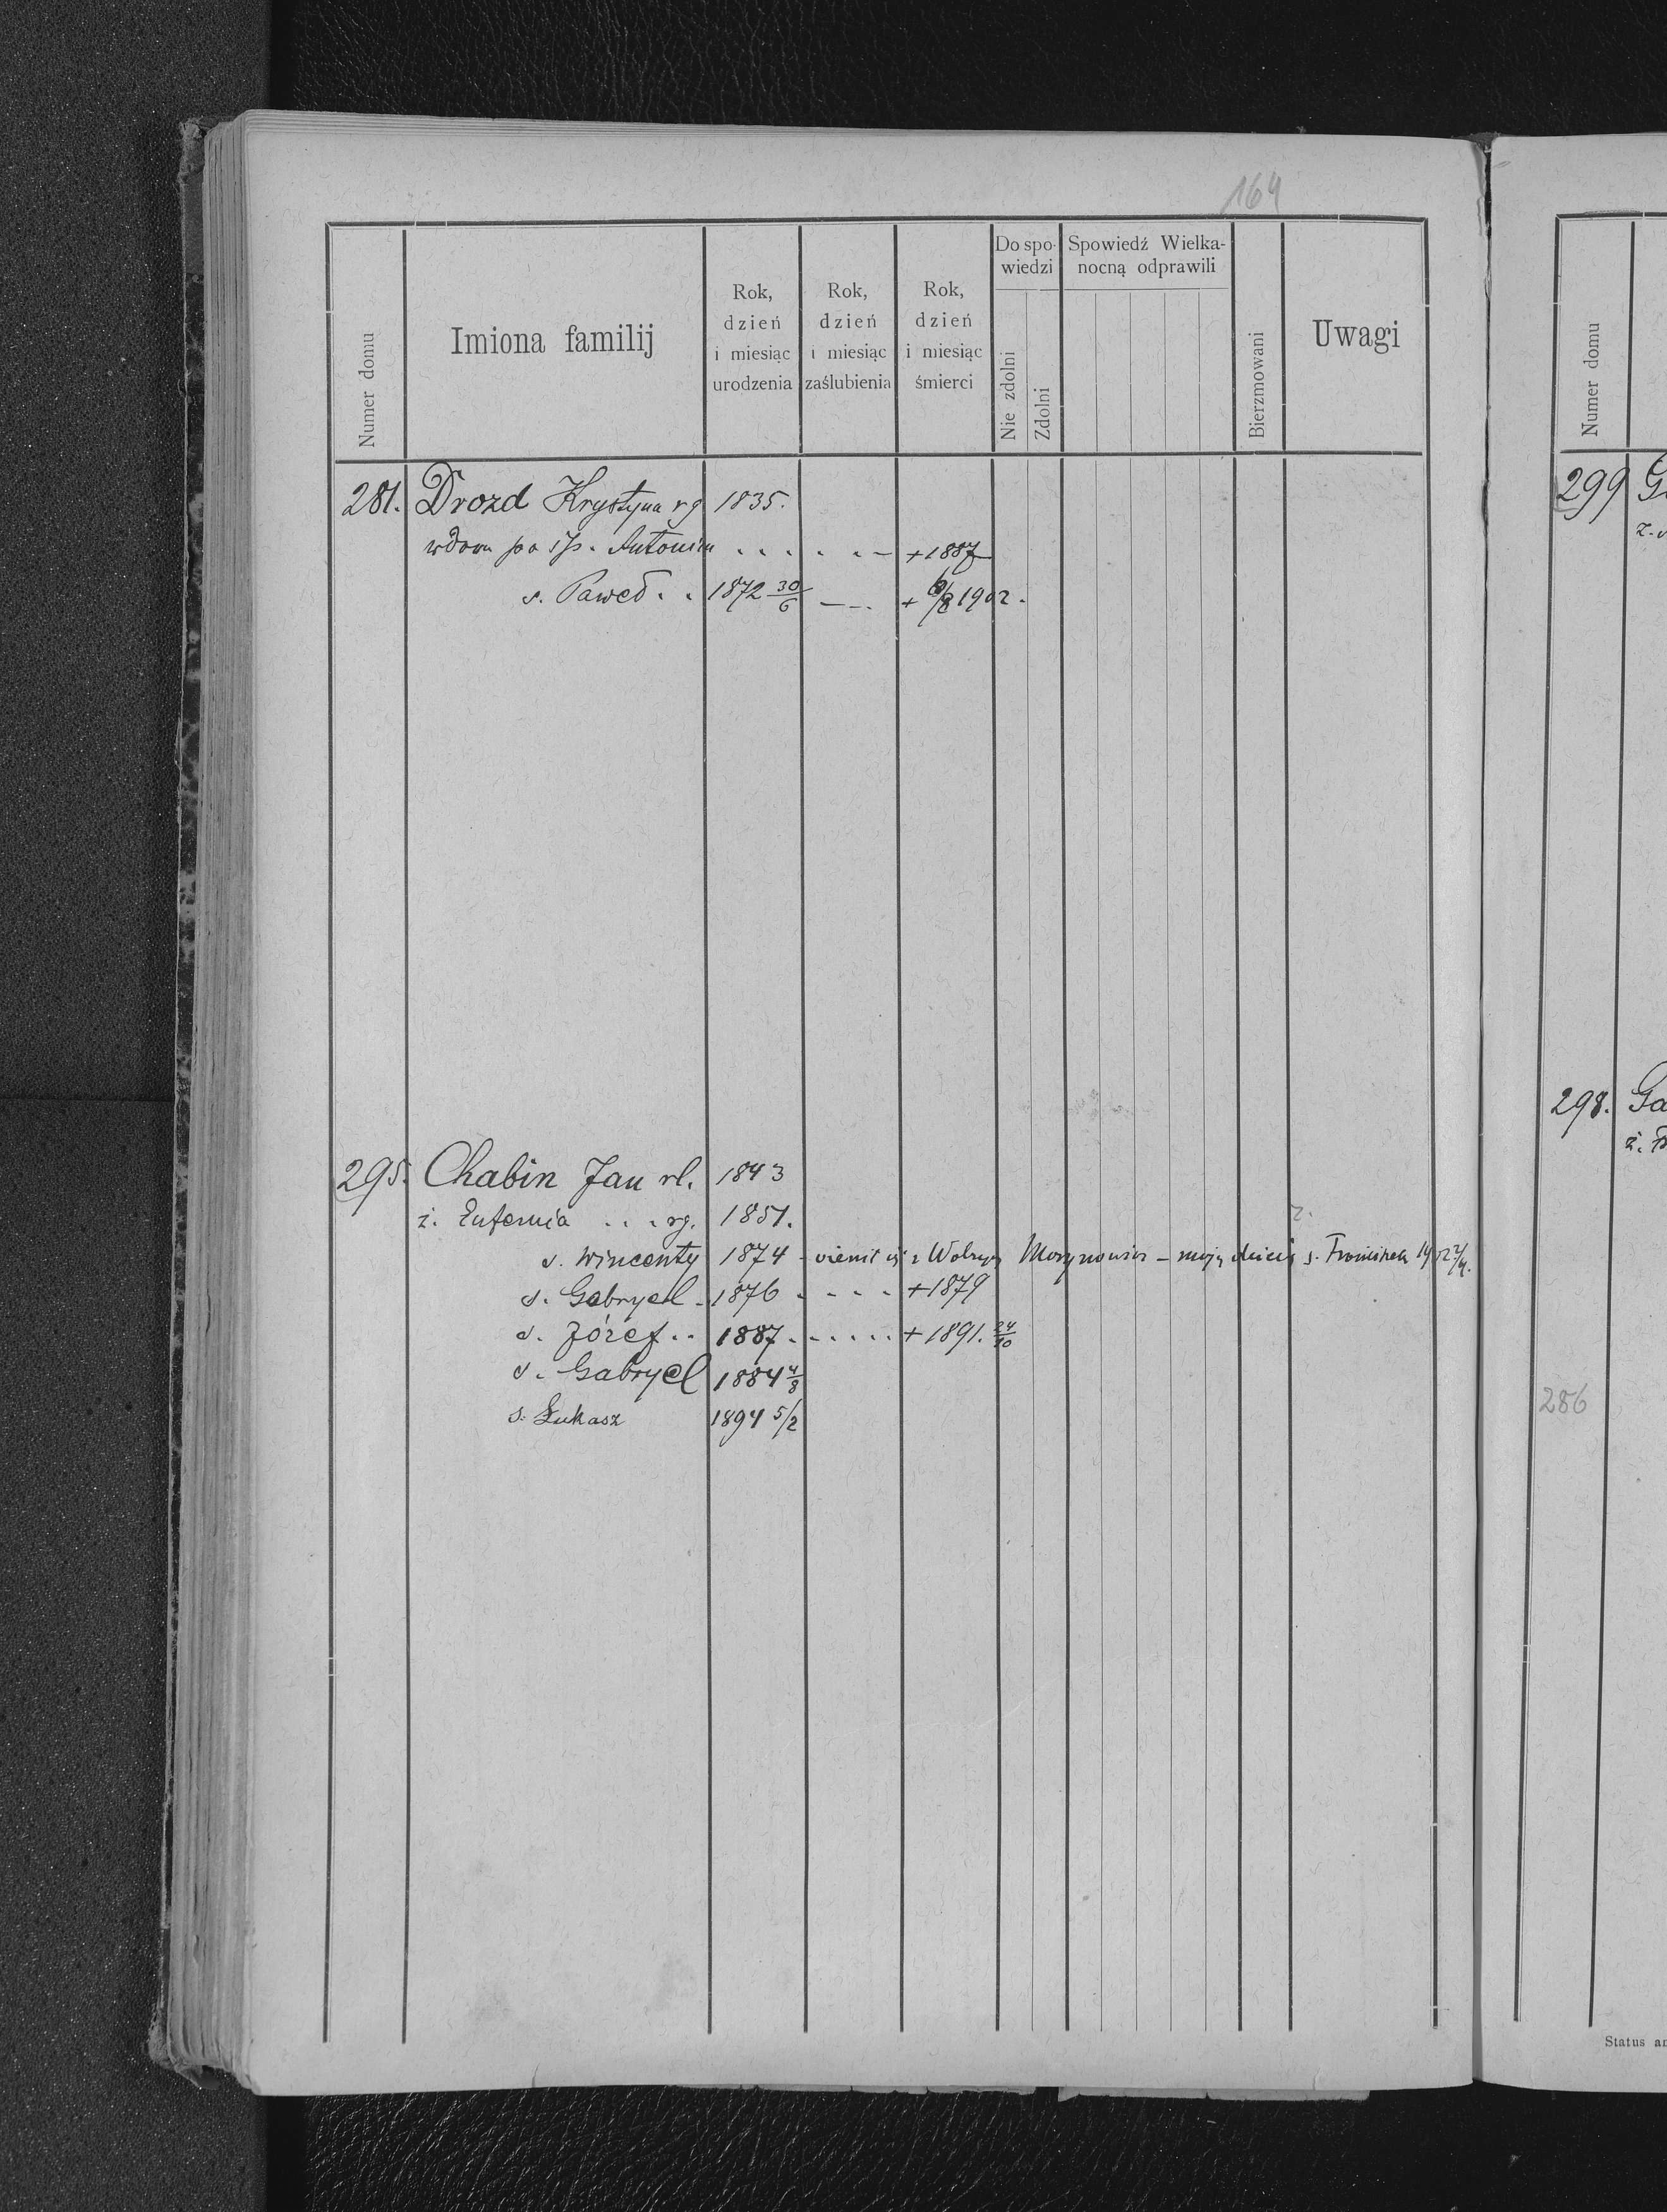 164
Numer domu
Imiona familij
Rok, dzień i miesiąc urodzenia
Rok, dzień i miesiąc zaślubienia
Rok, dzień i miesiąc śmierci
Do spo-
wiedzi
Nie zdolni
Zdolni
Spowiedź Wielka-
nocną odprawili
Bierzmowani
Uwagi
281. Drozd Krystyna rg 1835.
wdowa po śp. Antonim . . . . . - +1887
s. Paweł . . 1872 30/6 - - . + 8/8 1902.
295. Chabin Jan rl. 1843
ż. Eufemia . . . rg. 1851.
s. Wincenty 1874 - się z - mają s. Franciszek
s. Gabryel - 1876 - - - - +1879
s. Józef .. 1887 . - . . . . + 1891. 24/10
s. Gabryel 1884 4/8
s. Łukasz 1894 5/2
Numer domu
299
298. Ga
286
Status an